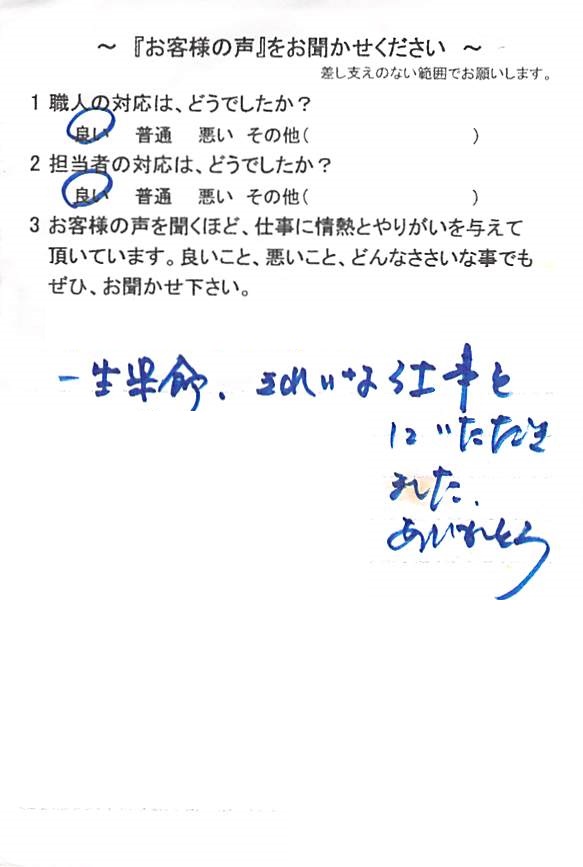 ～ 『お客様の声』をお聞かせください ～
差し支えのない範囲でお願いします。
1 職人の対応は、どうでしたか？
良い 普通 悪い その他( )
2 担当者の対応は、どうでしたか？
良い 普通 悪い その他( )
3 お客様の声を聞くほど、仕事に情熱とやりがいを与えて
頂いています。良いこと、悪いこと、どんなささいな事でも
ぜひ、お聞かせ下さい。
一生県命、きれいな仕事を
していただき
ました。
ありがとう